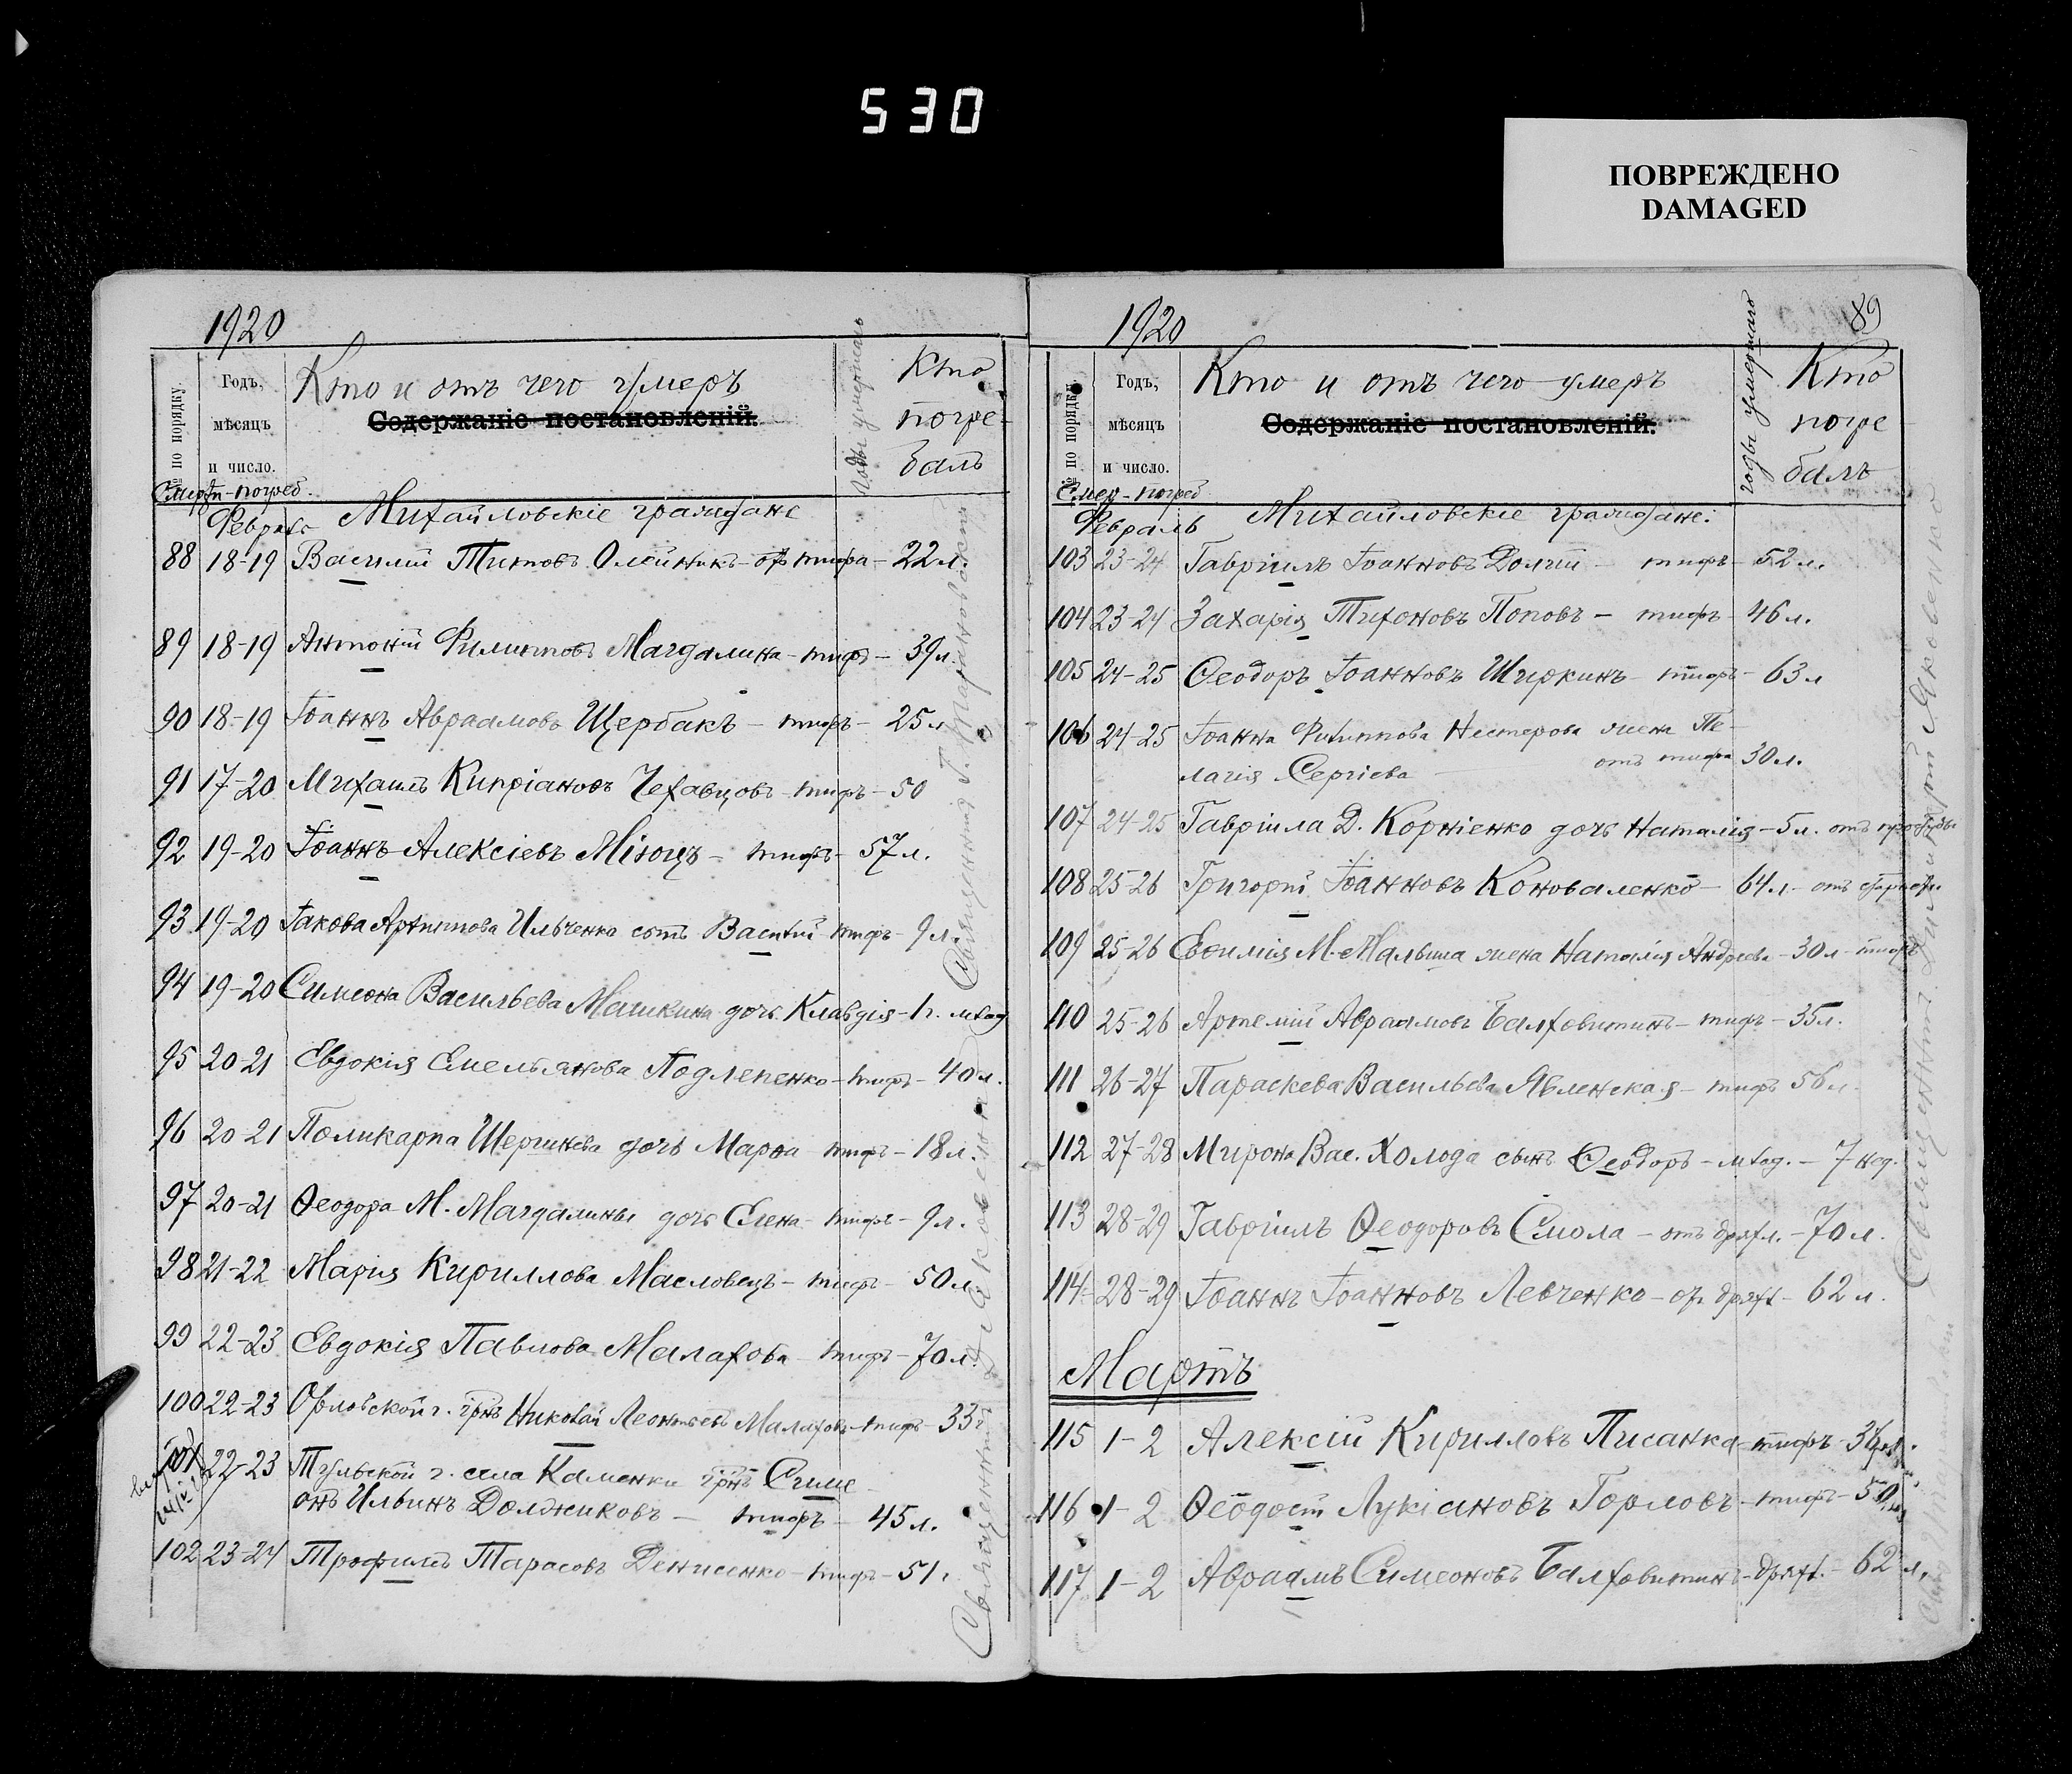 530
ПОВРЕЖДЕНО
DAMAGED
1920
по порядку.
Годъ,
мѣсяцъ
и число.
Смерть-погреб.
Кто и отъ чего умеръ
Содержаніе постановленій.
Годы умершаго
Кто
погре-
балъ
Февраль Михайловскіе граждане
88 18-19 Василий Титовъ Олейникъ - от тифа - 22 л.
89 18-19 Антоній Филиповъ Магдалина - тифъ - 39 л.
90 18-19 Іоаннъ Авраамовъ Щербакъ - тифъ - 25 л.
91 17-20 Михаилъ Кипріановъ Чехавцовъ - тифъ - 50
92 19-20 Іоаннъ Алексіевъ Мізоцъ - тифъ - 57 л.
93 19-20 Іакова Архиппова Ильченко сынъ Василій - тифъ - 9 л.
94 19-20 Симеона Васильева Машкина дочь Клавдія - 1 г. млад
95 20-21 Евдокія Емельянова Подлепенко - тифъ - 40 л.
96 20-21 Поликарпа Шершнева дочь Марѳа тифъ - 18 л.
97 20-21 Ѳеодора М. Магдалины дочь Елена - тифъ - 9 л.
98 21-22 Марія Кириллова Масловецъ - тифъ - 50 л.
99 22-23 Евдокія Павлова Малахова - тифъ - 70 л.
100 22-23 Орловской г. грнъ Николай Леонтьевъ Малаховъ - тифъ - 33 г.
101 22-23 Тульской г. села Каменки грнъ Симе
онъ Ильинъ Должиковъ - тифъ - 45 л.
102 23-24 Трофимъ Тарасовъ Денисенко - тифъ - 51.
Священникъ
1920
89
по порядку
Годъ,
мѣсяцъ
и число.
Смер - погреб
Кто и отъ чего умеръ
Содержаніе постановленій.
годы умершаго
Кто
погре
балъ
Февраль Михайловскіе граждане:
103 23-24 Гавріилъ Іоанновъ Долгій - тифъ - 52 л.
104 23-24 Захарія Тихоновъ Поповъ - тифъ - 46 л.
105 24-25 Ѳеодоръ Іоанновъ Ширкинъ - тифъ - 63 л
106 24-25 Іоанна Филиппова Нестерова жена Пе-
лагія Сергіева - отъ тифа 30 л.
107 24-25 Гавріила Д. Корніенко дочь Наталія - 5 л. отъ простуды
108 25-26 Григорій Іоанновъ Коноваленко - 64 л - отъ старости.
109 25-26 Евѳимія М. Малыша жена Наталія Андреева - 30 л - тифъ
110 25-26 Артемій Авраамовъ Балховитинъ - тифъ - 35 л.
111 26-27 Параскева Васильева Явленская - тифъ 56 л
112 27-28 Мирона Вас. Холода сынъ Ѳеодоръ - млад. - 7 нед.
113 28-29 Гавріилъ Ѳеодоровъ Смола - отъ дряхл. - 70 л.
114 28-29 Іоаннъ Іоанновъ Левченко - от дряхл - 62 л.
Мартъ
115 1-2 Алексій Кирилловъ Писанка - тифъ - 36 л.
116 1-2 Ѳеодосій Лукіановъ Горловъ - тифъ - 50
117 1-2 Авраамъ Симеоновъ Балховитинъ - дряхл. - 62 л.
Священникъ Димитрій Яковенко